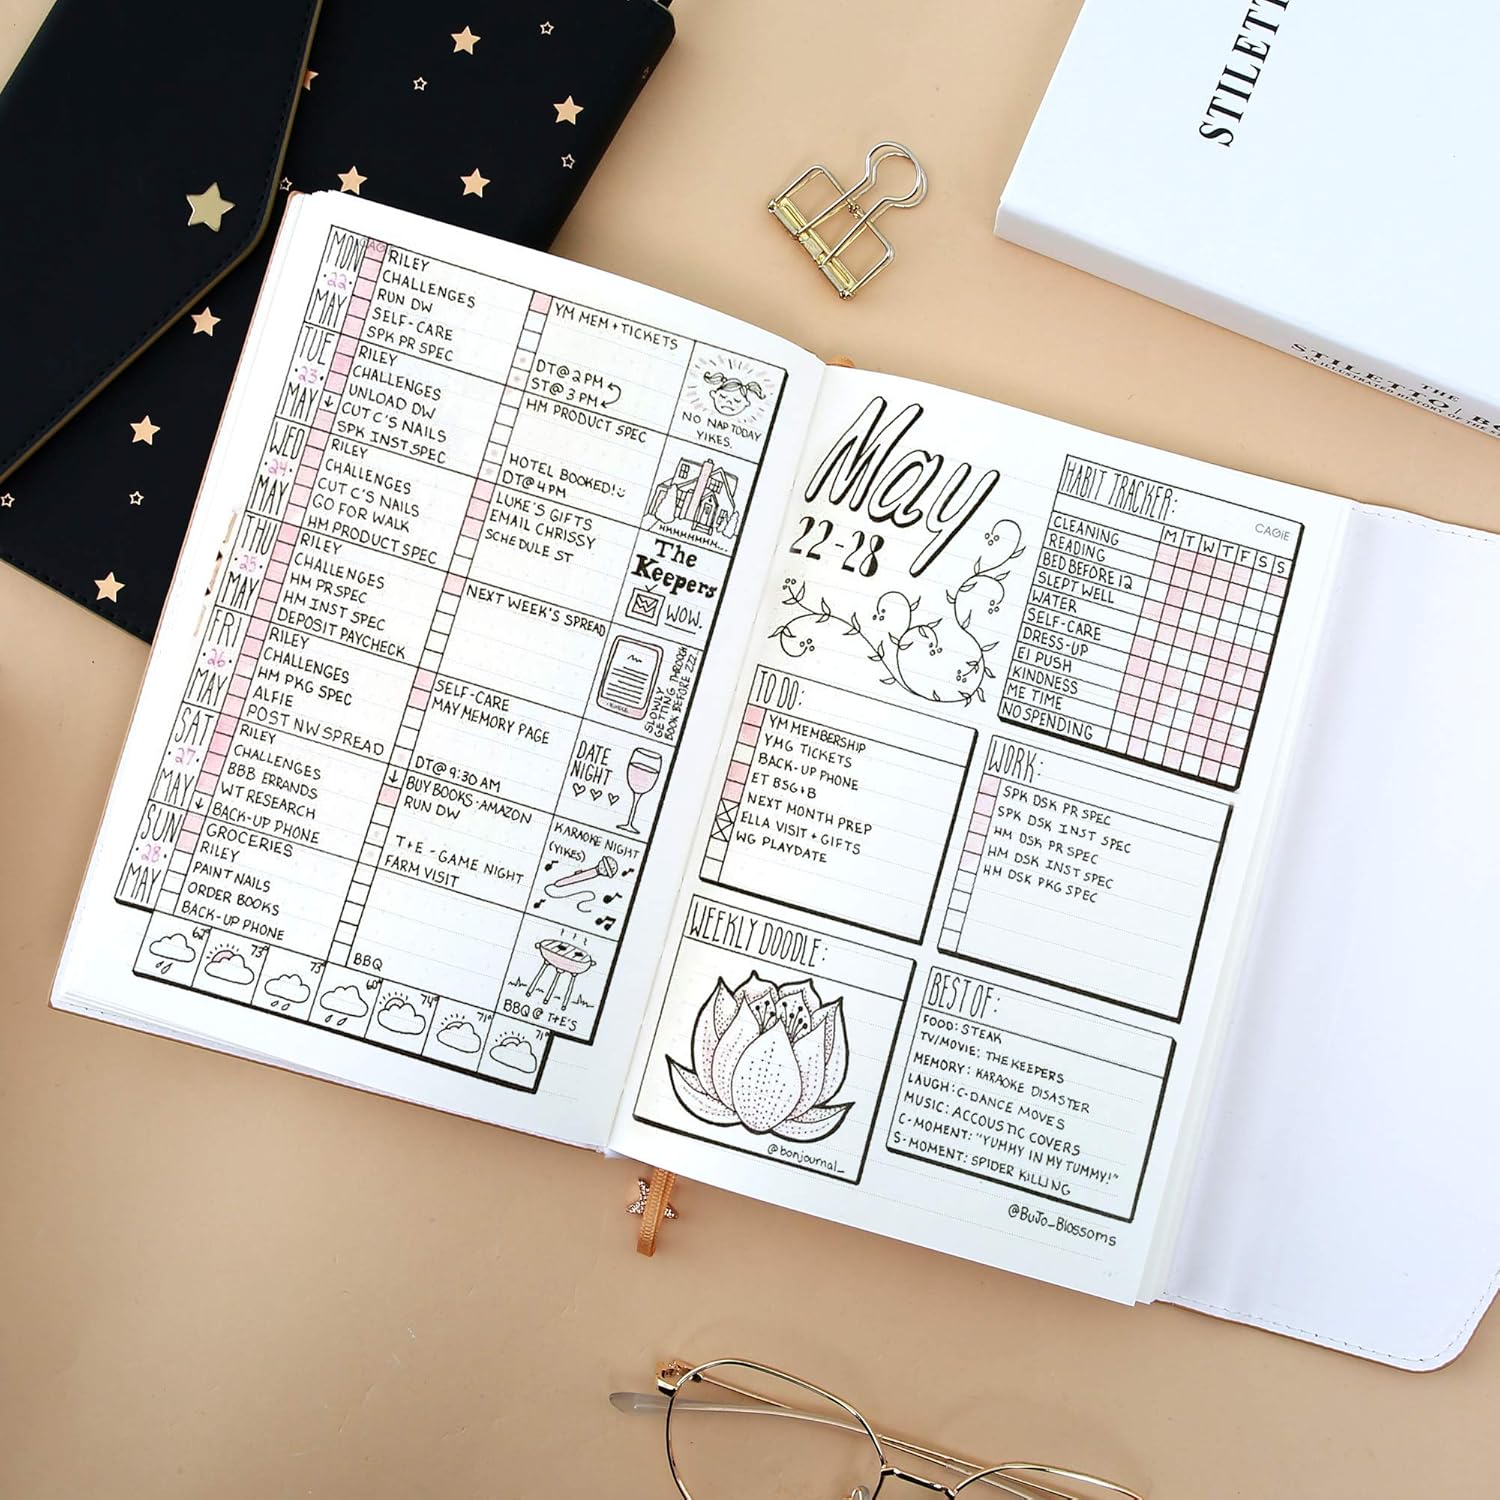 STILETT
THE
STILETTO
AN ILLUSTRATED HISTORY OF THE
MON
22
MAY
RILEY
CHALLENGES
RUN DW
SELF-CARE
SPK PR SPEC
YM MEM + TICKETS
DT @ 2 PM
ST @ 3 PM
NO NAP TODAY
YIKES.
TUE
23
MAY
RILEY
CHALLENGES
UNLOAD DW
CUT C'S NAILS
SPK INST SPEC
HM PRODUCT SPEC
HOTEL BOOKED!
DT@ 4 PM
HHHHHHHH...
WED
24
MAY
RILEY
CHALLENGES
CUT C'S NAILS
GO FOR WALK
HM PRODUCT SPEC
LUKE'S GIFTS
EMAIL CHRISSY
SCHEDULE ST
The
Keepers
WOW.
THU
25
MAY
RILEY
CHALLENGES
HM PR SPEC
HM INST SPEC
DEPOSIT PAYCHECK
NEXT WEEK'S SPREAD
SLOWLY
GETTING THROUGH
BOOK BEFORE ZZZ.
FRI
26
MAY
RILEY
CHALLENGES
HM PKG SPEC
ALFIE
POST NW SPREAD
SELF-CARE
MAY MEMORY PAGE
DT@ 9:30 AM
DATE
NIGHT
SAT
27
MAY
RILEY
CHALLENGES
BBB ERRANDS
WT RESEARCH
BACK-UP PHONE
BUY BOOKS - AMAZON
RUN DW
T+E - GAME NIGHT
FARM VISIT
KARAOKE NIGHT
(YIKES)
SUN
28
MAY
GROCERIES
RILEY
PAINT NAILS
ORDER BOOKS
BACK-UP PHONE
BBQ
BBQ @ T+E'S
62°
73°
73°
60°
74°
71°
71°
May
22-28
HABIT TRACKER:
CAGIE
M T W T F S S
CLEANING
READING
BED BEFORE 12
SLEPT WELL
WATER
SELF-CARE
DRESS-UP
EI PUSH
KINDNESS
ME TIME
NO SPENDING
TO DO:
YM MEMBERSHIP
YMG TICKETS
BACK-UP PHONE
ET BSG+B
NEXT MONTH PREP
ELLA VISIT + GIFTS
WG PLAYDATE
WORK:
SPK DSK PR SPEC
SPK DSK INST SPEC
HM DSK PR SPEC
HM DSK INST SPEC
HM DSK PKG SPEC
WEEKLY DOODLE:
@bonjournal_
BEST OF:
FOOD: STEAK
TV/MOVIE: THE KEEPERS
MEMORY: KARAOKE DISASTER
LAUGH: C-DANCE MOVES
MUSIC: ACCOUSTIC COVERS
C-MOMENT: "YUMMY IN MY TUMMY!"
S-MOMENT: SPIDER KILLING
@BuJo_Blossoms